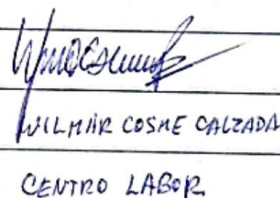 WILMAR COSME CALZADA
CENTRO LABOR